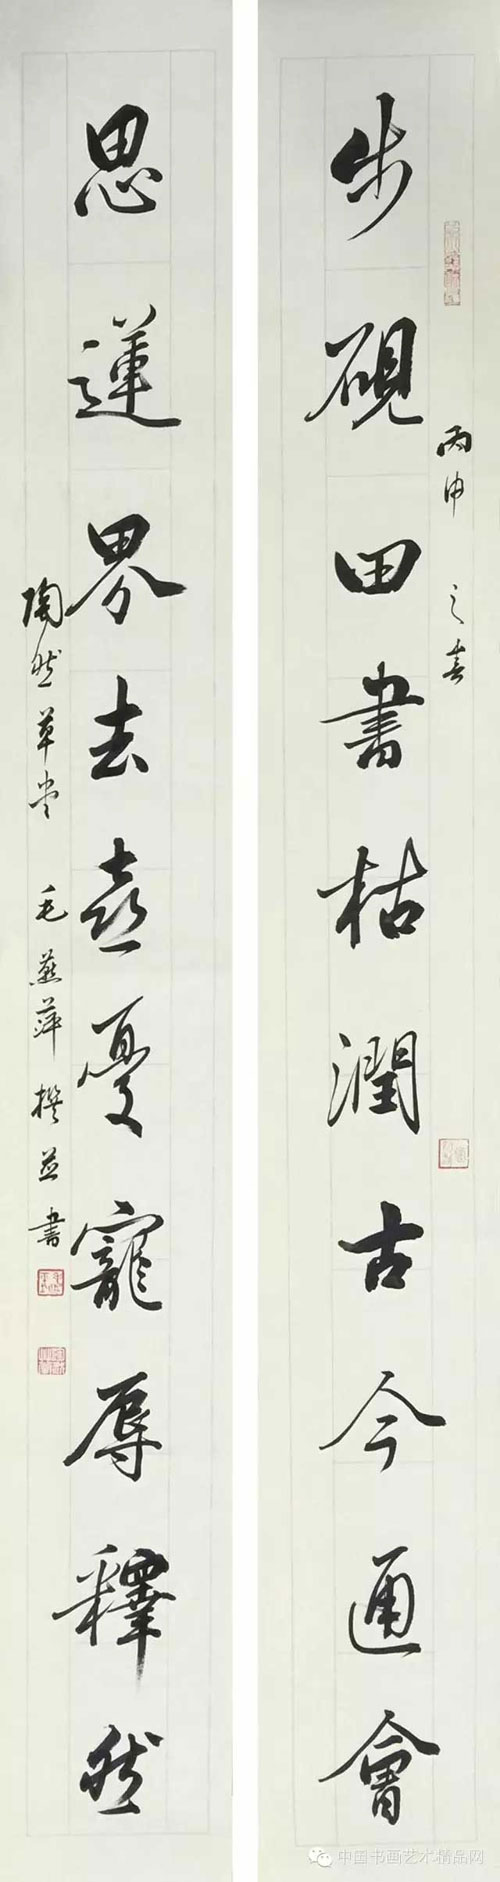 步硯田書枯潤古今通會
丙申之春
思蓮界去喜憂寵辱釋然
陶然草堂 毛燕萍撰並書
中国书画艺术精品网